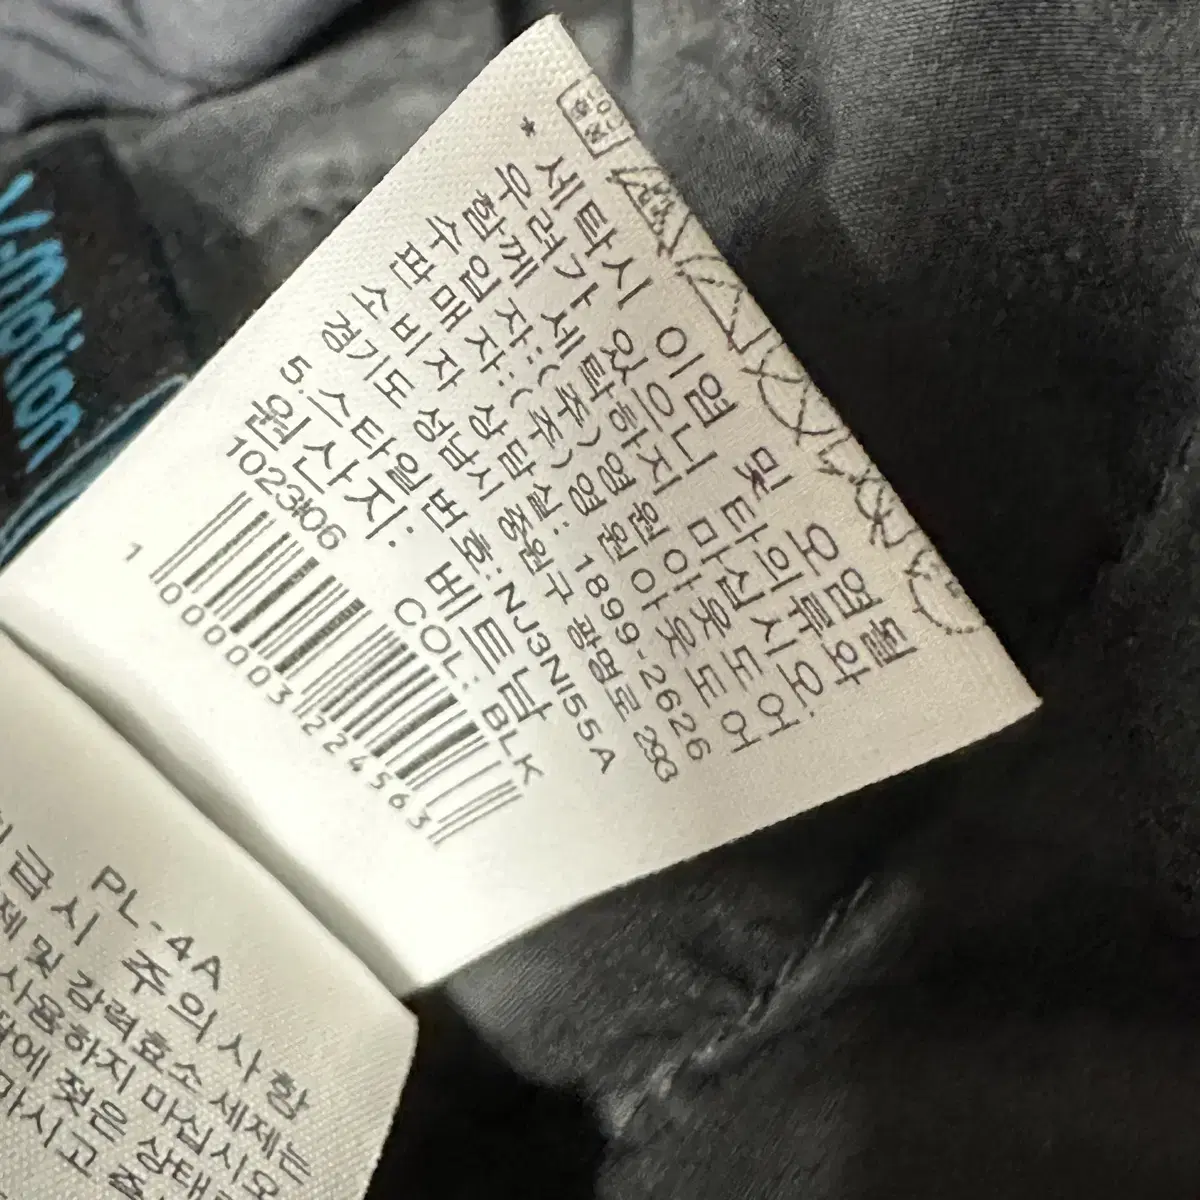 V-Motion
* 세탁시 이염 및 오염될
우려가 있으니 타의류와
함께 세탁하지 마십시오.
수입자:(주)영원아웃도어
판매자:(주)영원아웃도어
소비자 상담실: 1899-2626
경기도 성남시 중원구 광명로 293
5.스타일번호:NJ3NI55A
원산지: 베트남 COL: BLK
1023#06
1 000003 224563
PL-4A
급시 주의사항
제 및 강력효소 세제는
사용하지 마십시오
에 젖은 상태
마시고